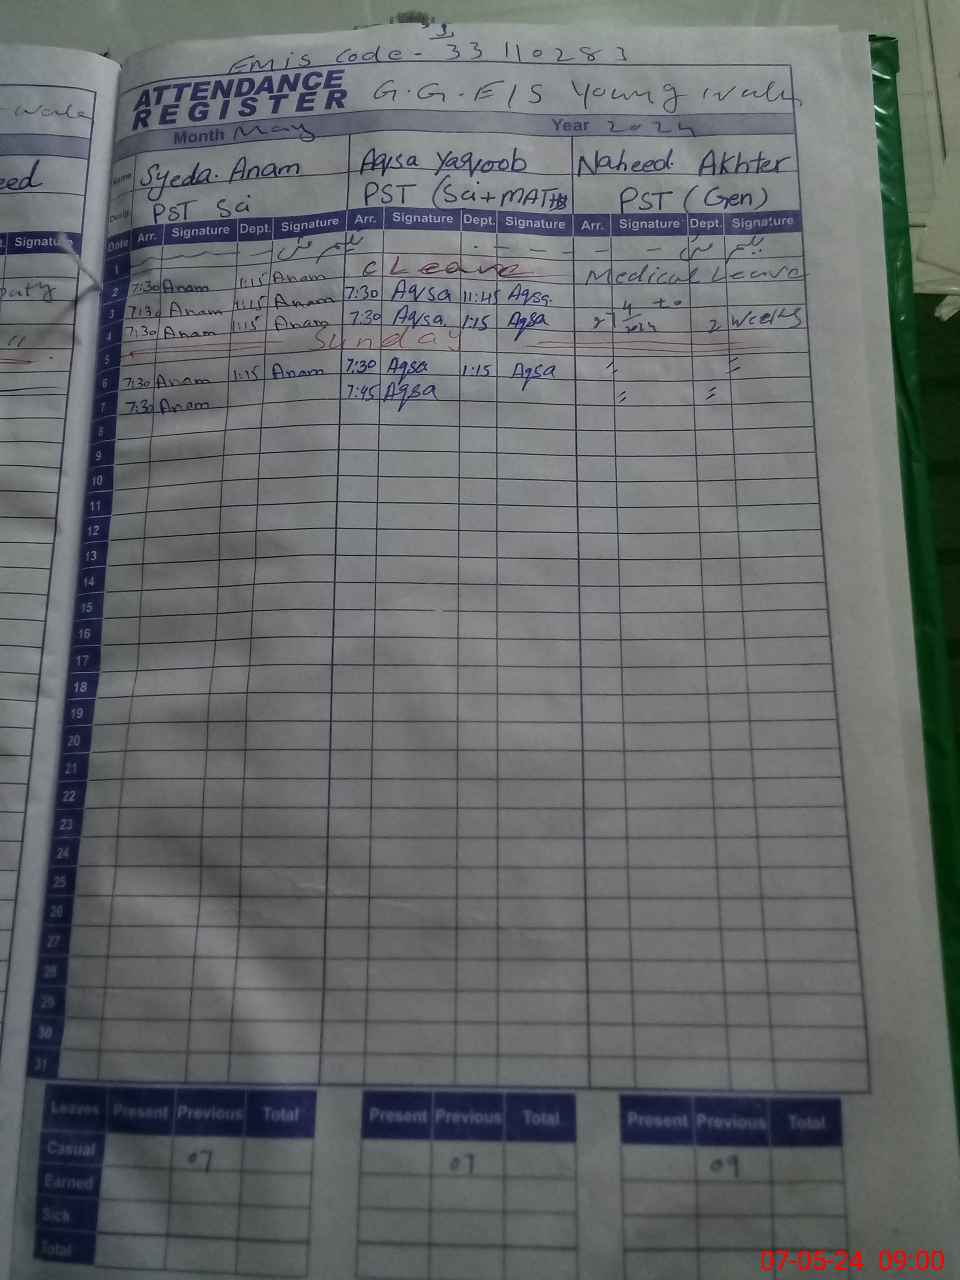 EMIS Code - 33110283
ATTENDANCE REGISTER G.G.E/S Young wala
Month May Year 2024
Name Syeda. Anam Aqsa Yaqoob Naheed. Akhter
PST Sci PST (Sci+MATH) PST (Gen)
Date Arr. Signature Dept. Signature Arr. Signature Dept. Signature Arr. Signature Dept. Signature
1
2 7:30 Anam 1:15 Anam C Leave Medical Leave
3 7:30 Anam 1:15 Anam 7:30 Aqsa 11:45 Aqsa
4 7:30 Anam 1:15 Anam 7:30 Aqsa 1:15 Aqsa 27 4 to 2 Weeks
5 Sunday
6 7:30 Anam 1:15 Anam 7:30 Aqsa 1:15 Aqsa 〃 〃
7 7:30 Anam 7:45 Aqsa 〃 〃
8
9
10
11
12
13
14
15
16
17
18
19
20
21
22
23
24
25
26
27
28
29
30
31
Leaves Present Previous Total Present Previous Total Present Previous Total
Casual 07 07 09
Earned
Sick
Total
07-05-24 09:00